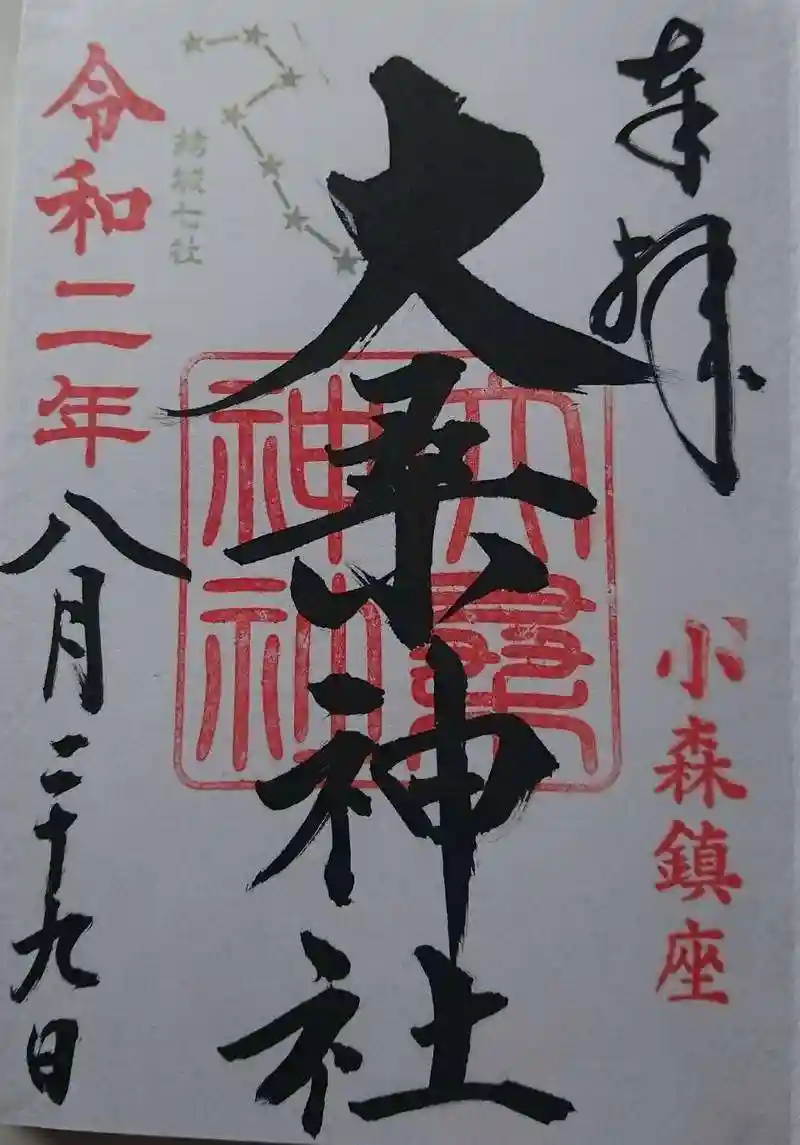 奉拝
小森鎮座
大桑神社
大桑
神社
結城七社
令和二年
八月二十九日